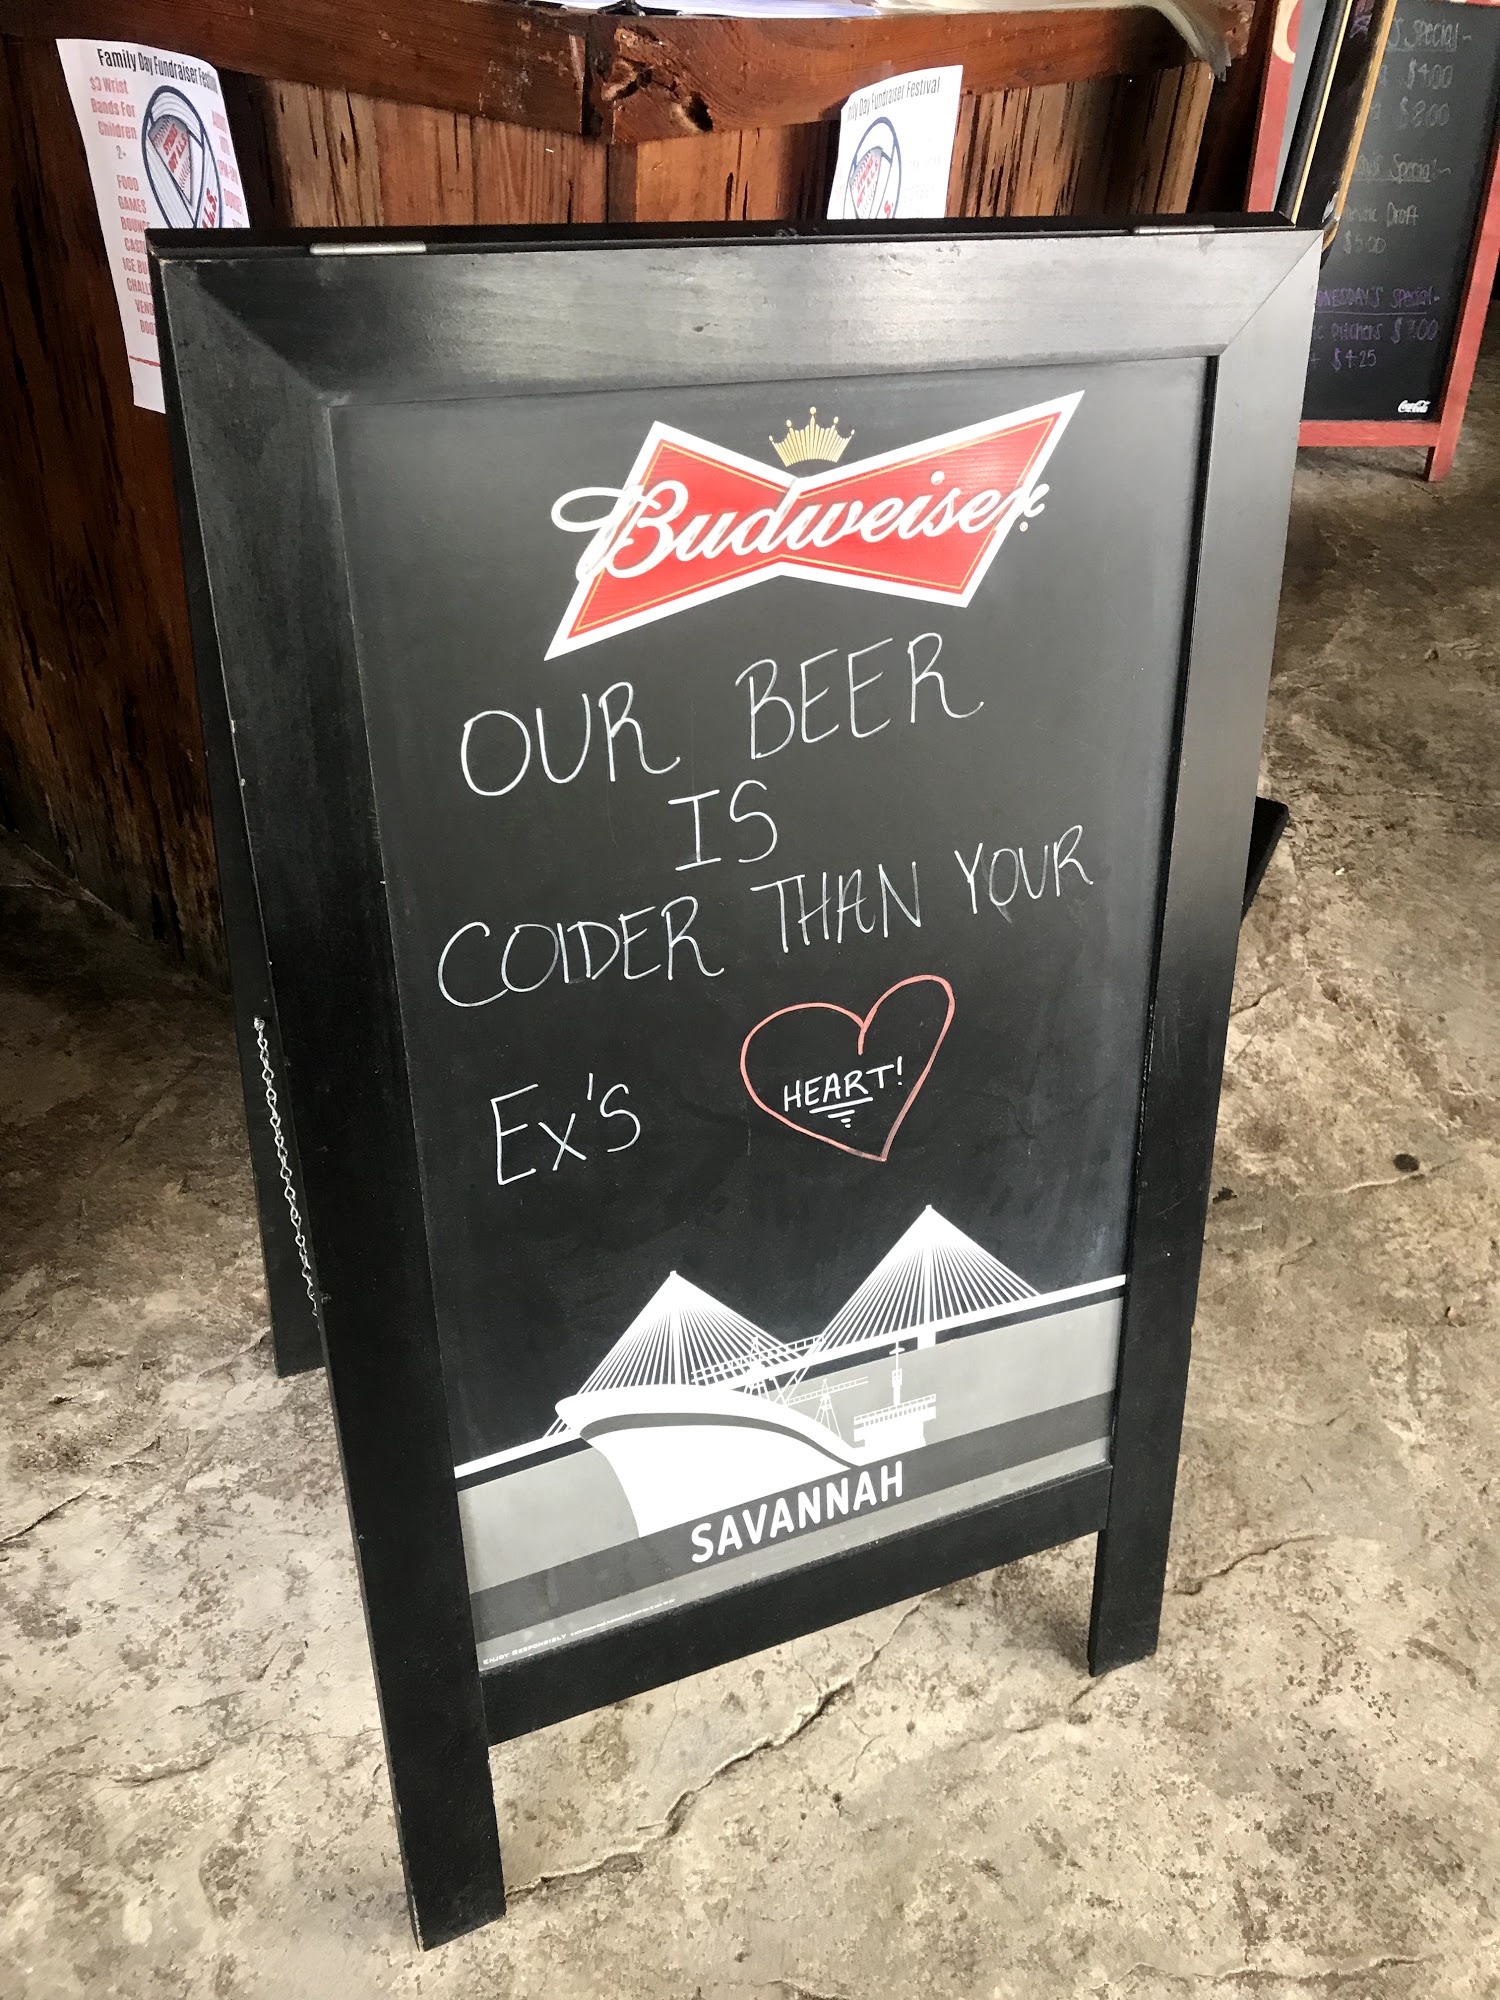 Family Day Fundraiser
$3 Wrist
Bands For
Children
2+
FOOD
GAMES
ICE
Day Fundraiser Festival
Special-
$4.00
$8.00
Special-
Draft
$5.00
Special-
Pitchers
$4.25
Coca-Cola
Budweiser
OUR BEER
IS
COlDER THAN YOUR
Ex's HEART!
SAVANNAH
ENJOY RESPONSIBLY